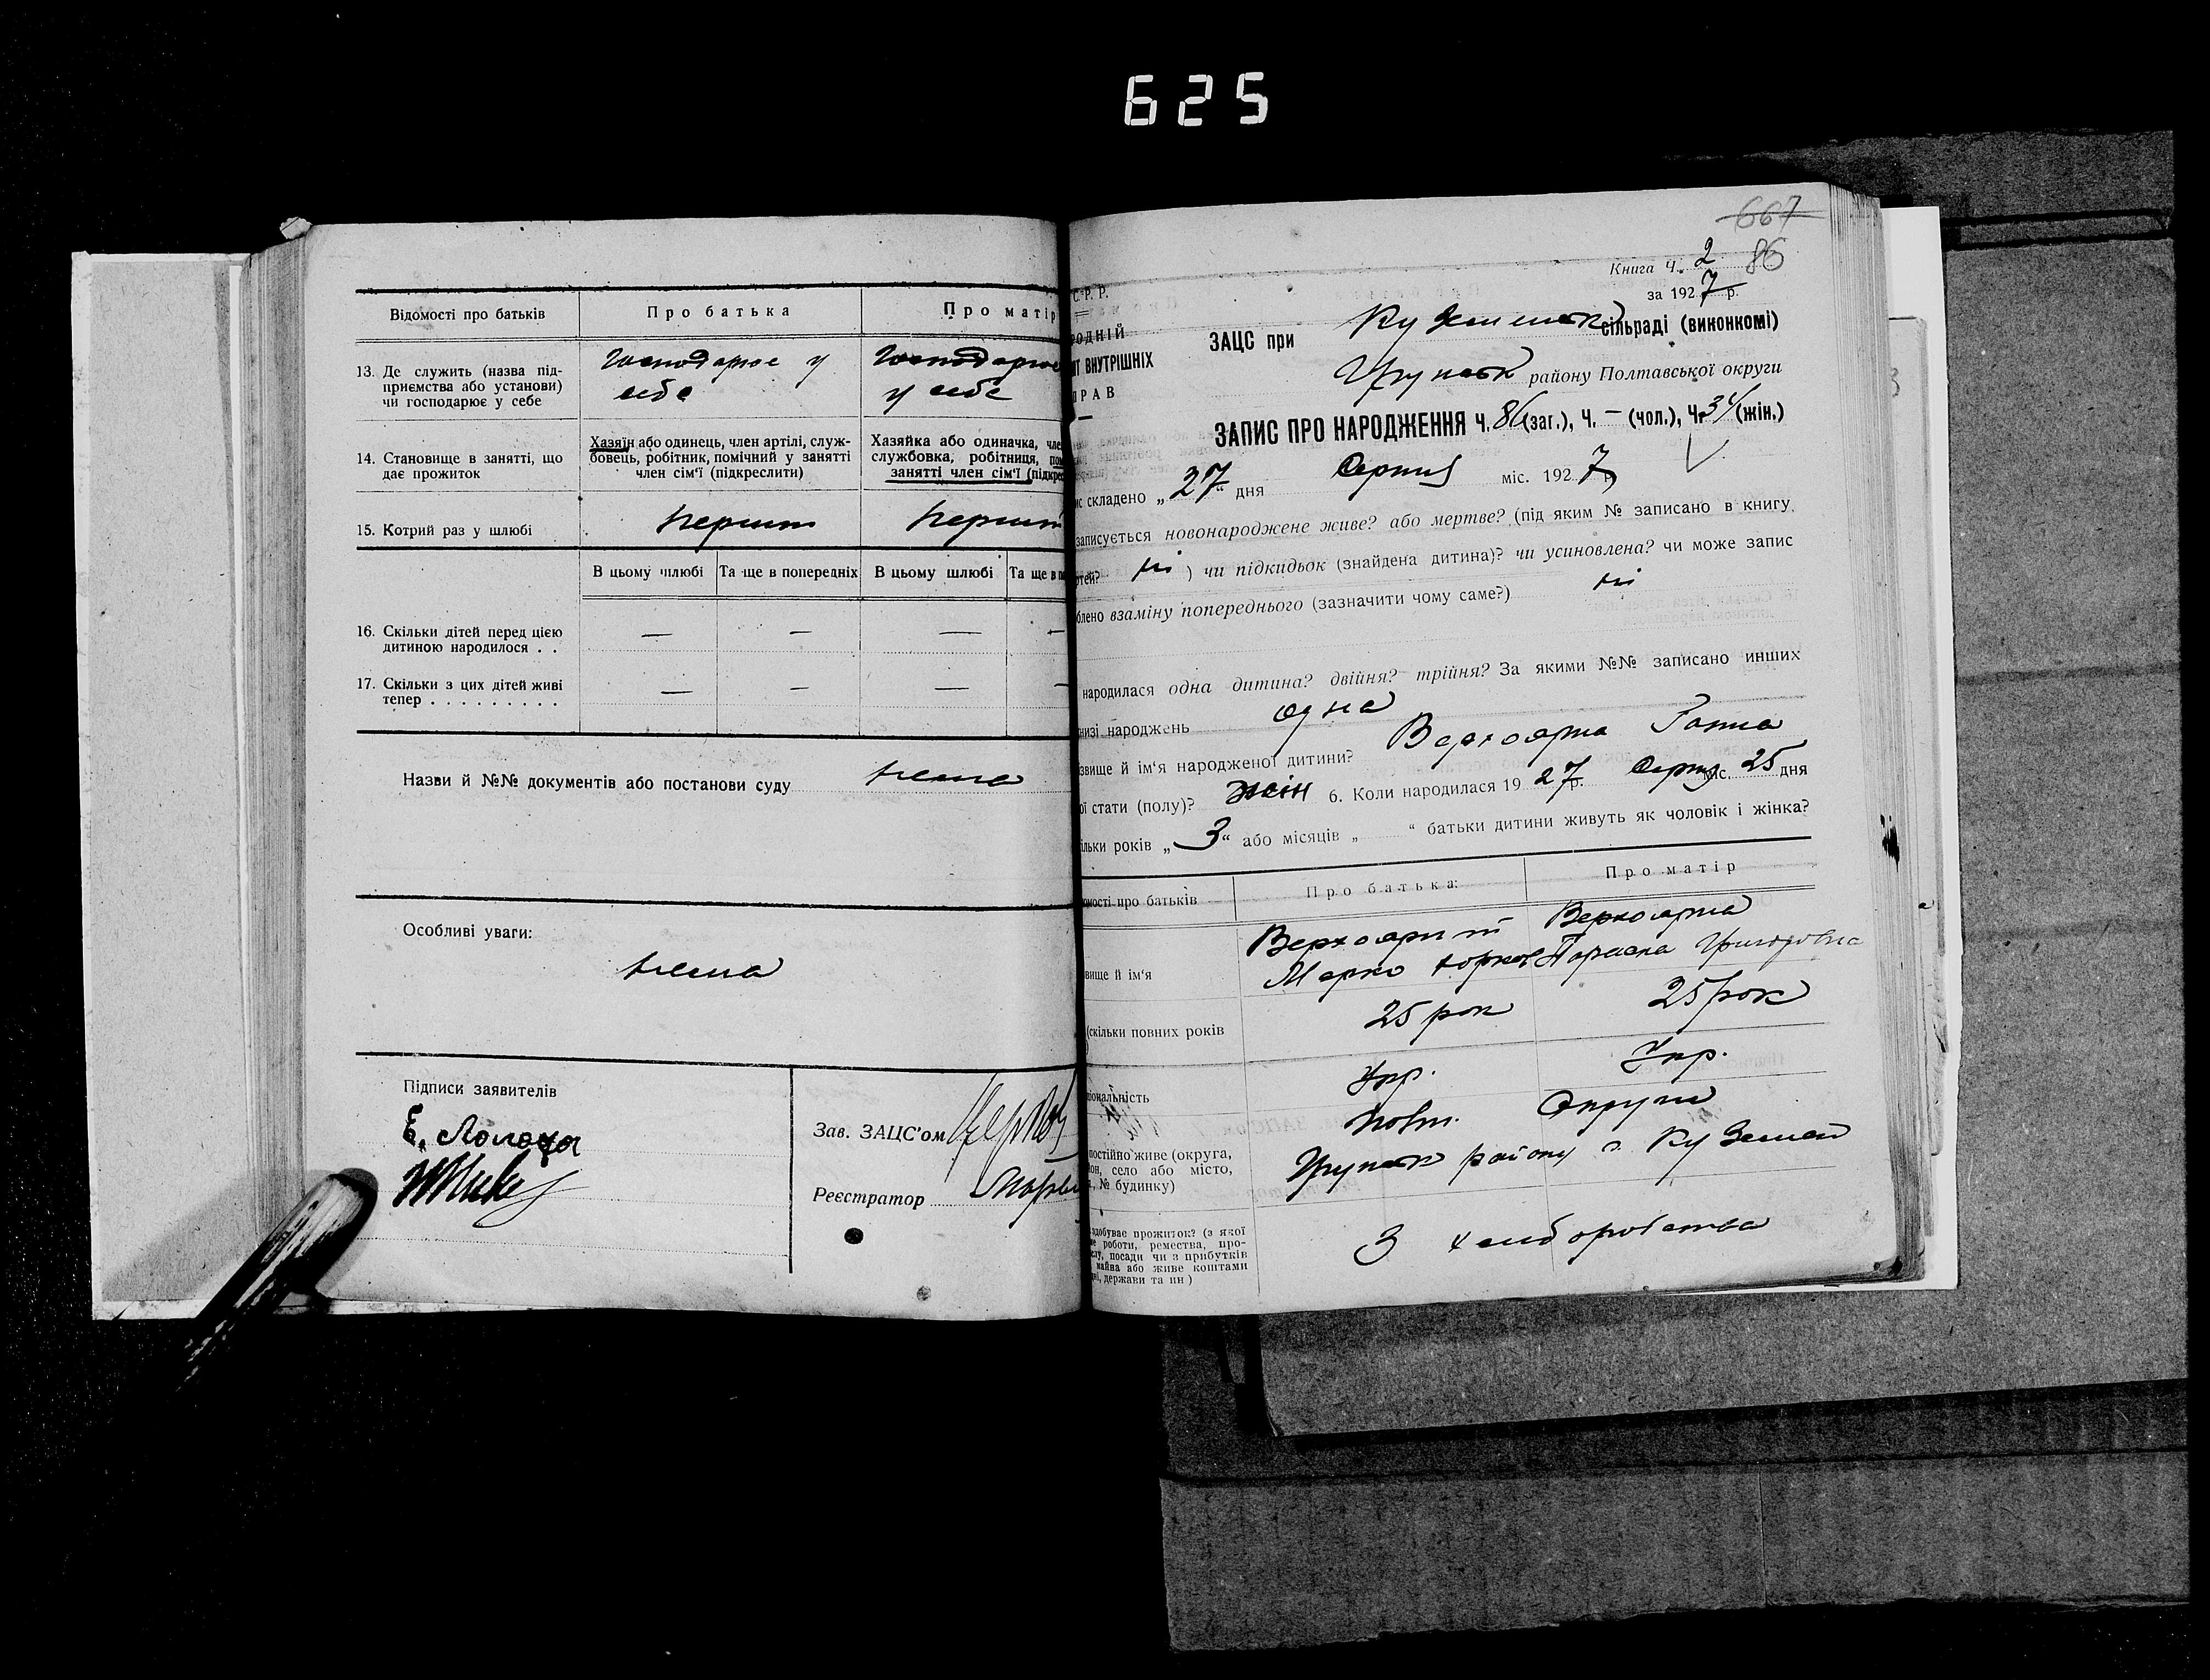 625
Відомості про батьків
Про батька
Про матір
13. Де служить (назва під-
приємства або установи)
чи господарює у себе
Господарює у
себе
Господарює
у себе
14. Становище в занятті, що
дає прожиток
Хазяїн або одинець, член артілі, служ-
бовець, робітник, помічний у занятті
член сім'ї (підкреслити)
Хазяйка або одиначка, чле
службовка, робітниця, по
занятті член сім'ї (підкре
15. Котрий раз у шлюбі
Першит
Першит
В цьому шлюбі
Та ще в попередніх
В цьому шлюбі
Та ще в п
16. Скільки дітей перед цією
дитиною народилося . .
— — — —
17. Скільки з цих дітей живі
тепер . . . . . . . . .
— — — —
Назви й №№ документів або постанови суду нема
Особливі уваги:
нема
Підписи заявителів
Зав. ЗАЦС'ом
Реєстратор
667
Книга Ч. 2 86
за 1927 р.
С. Р. Р.
РОДНІЙ
ІТ ВНУТРІШНІХ
ПРАВ
ЗАЦС при Куземинськ сільраді (виконкомі)
Грунськ району Полтавської округи
ЗАПИС ПРО НАРОДЖЕННЯ Ч. 86 (заг.), Ч. — (чол.), Ч. 34 (жін.)
ис складено „27“ дня Серпня міс. 1927 р
записується новонароджене живе? або мертве? (під яким № записано в книгу
ртей? ні ) чи підкидьок (знайдена дитина)? чи усиновлена? чи може запис
блено взаміну попереднього (зазначити чому саме?) ні
народилася одна дитина? двійня? трійня? За якими №№ записано инших
низі народжень одна
звище й ім'я народженої дитини? Верхоярна Ганна
ої стати (полу)? жін 6. Коли народилася 1927 р. Серпня міс. 25 дня
ільки років „3“ або місяців „ “ батьки дитини живуть як чоловік і жінка?
омості про батьків
Про батька:
Про матір
звище й ім'я
Верхоярит
Марко
Верхоярна
Параска Григоровна
(скільки повних років
25 рок
25 рок
ціональність
Укр.
Укр.
постійно живе (округа,
он, село або місто,
, № будинку)
Полт. Округи
Грунськ району с. Куземен
здобуває прожиток? (з якої
ме роботи, ремества, про-
слу, посади чи з прибутків
майна або живе коштами
ні, держави та ин)
З хліборобства